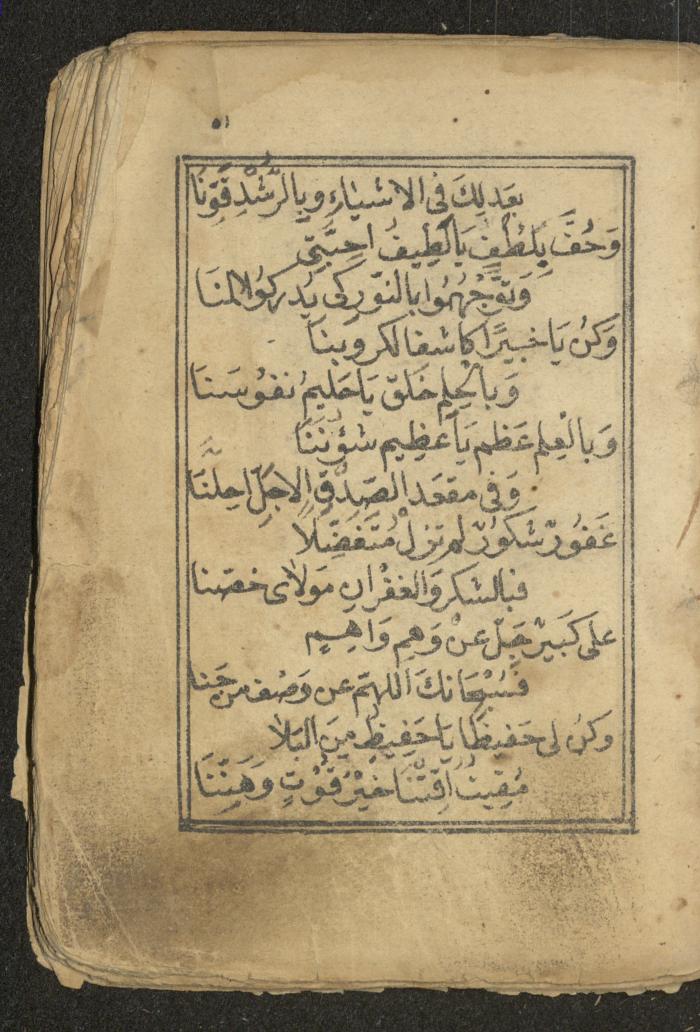 ٥١
بعَدلِكَ فِى الاشيَاءِ وبِالرُّشْدِ قَوِّنَا
وَحُفَّ بِلُطْفٍ يَا لَطِيفُ احِبَّتِى
وَتَوِّجْهُمُوا بالنّورِ كى يُدركوُا المنَا
وَكنُ يَا خَبيرًا كاشفا لكروبنا
وَبالحِلمِ خَلّق يَا حَليمُ نفوُسَنا
وَبالْعِلمِ عَظم يَا عَظِيم شؤُنَنَا
وَفى مقعَدِ الصِدّقِ الاجَلِّ احِلَّنَا
غَفوُرٌ شكوُرٌ لم تزل مُتَفَضِّلاً
فبالشكرِ وَالغفرانِ مَولاى خصّنا
على كَبيرٌ جَلّ عنْ وَهِم وَاهِيم
فسُبْحَانكَ اللهمّ عن وَصْف من جَنا
وكن لى حَفيظًا يا حَفِيظُ مِنَ البَلا
مُقِيتُ اَقِتْنَا خَيْرَ قوُتٍ وَهَنِّنَا